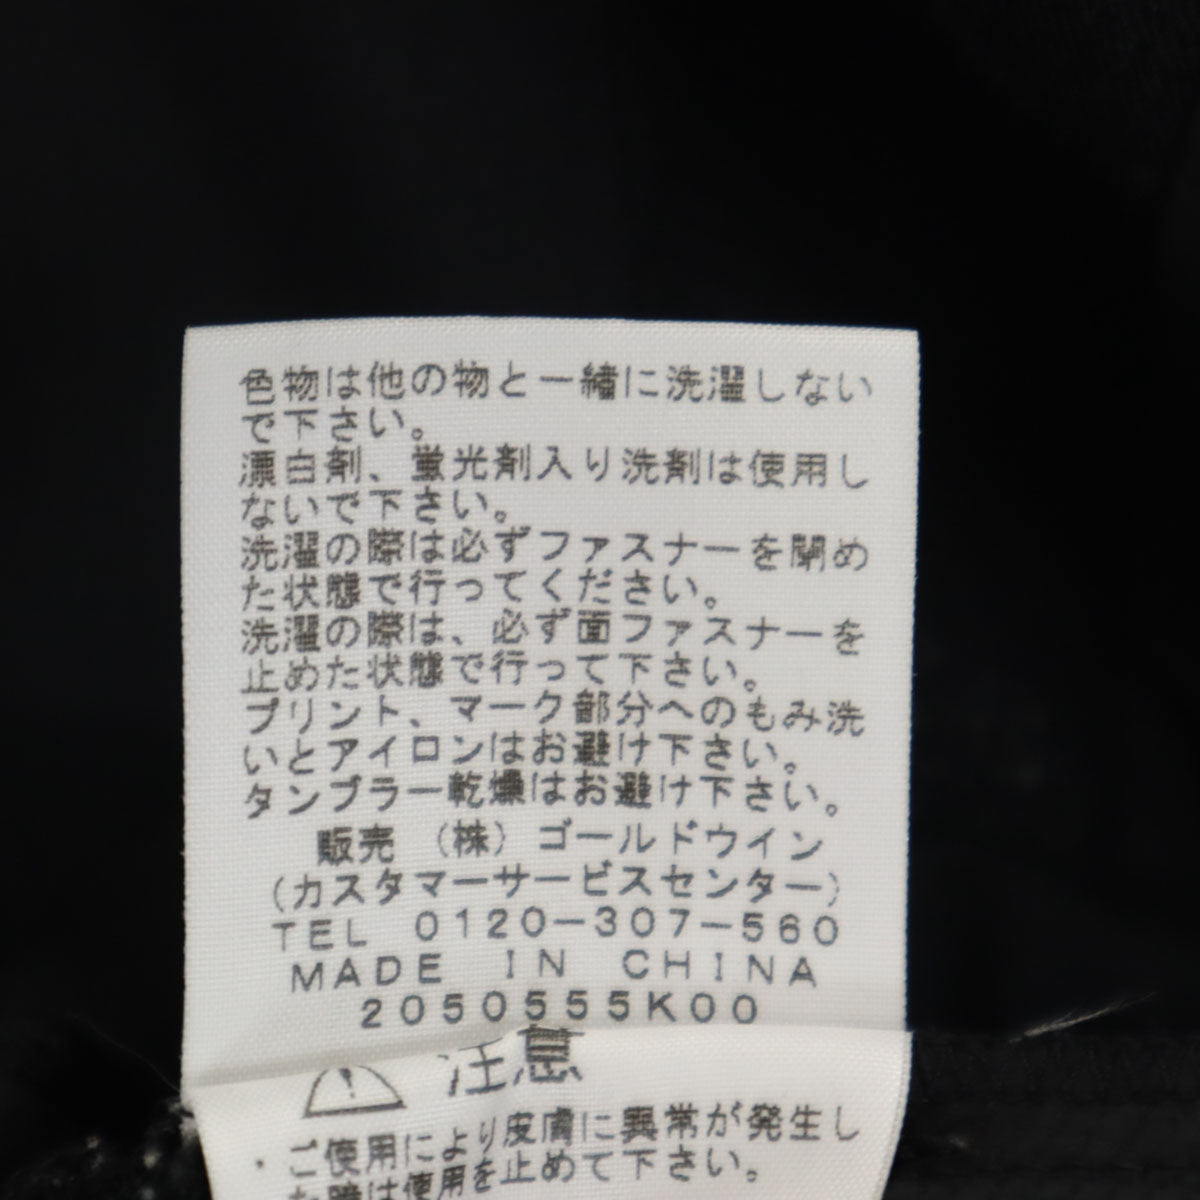 色物は他の物と一緒に洗濯しない
で下さい。
漂白剤、蛍光剤入り洗剤は使用し
ないで下さい。
洗濯の際は必ずファスナーを閉め
た状態で行ってください。
洗濯の際は、必ず面ファスナーを
止めた状態で行って下さい。
プリント、マーク部分へのもみ洗
いとアイロンはお避け下さい。
タンブラー乾燥はお避け下さい。
販売 (株)ゴールドウイン
(カスタマーサービスセンター)
TEL 0120-307-560
MADE IN CHINA
2050555K00
注意
・ご使用により皮膚に異常が発生し
た時は使用を止めて下さい。